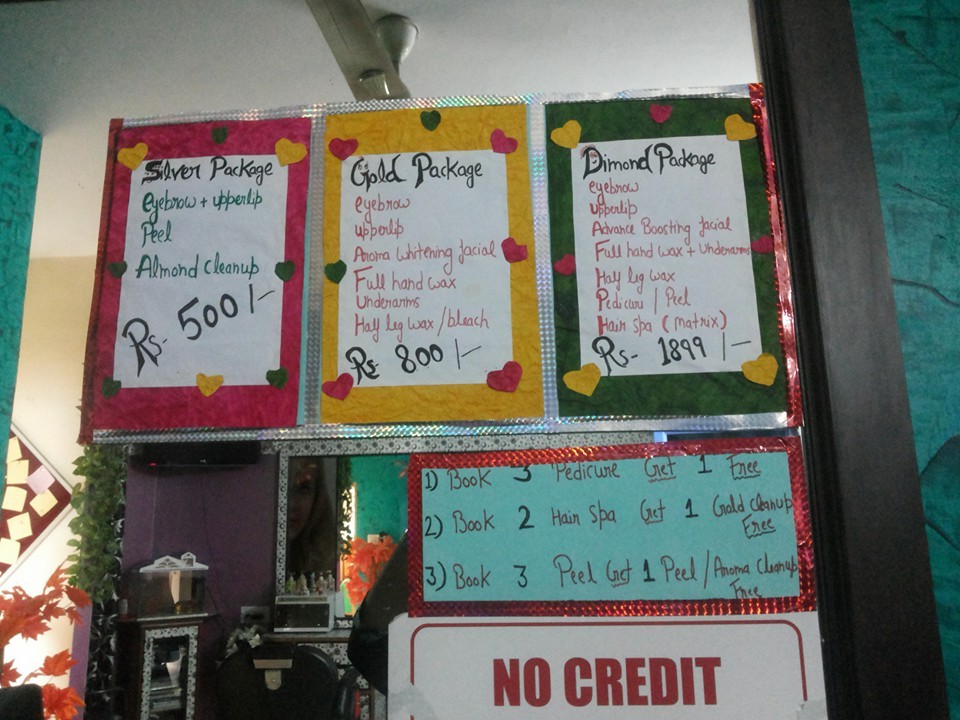 Silver Package
Eyebrow + upperlip
Peel
Almond Cleanup
Rs- 500/-
Gold Package
eyebrow
upperlip
Aroma Whitening facial
Full hand wax
Underarms
Half leg wax / bleach
Rs 800 /-
Dimond Package
eyebrow
Upperlip
Advance Boosting facial
Full hand wax + Underarms
Half leg wax
Pedicure / Peel
Hair spa (matrix)
Rs- 1899 /-
1) Book 3 Pedicure Get 1 Free
2) Book 2 Hair Spa Get 1 Gold Cleanup
Free
3) Book 3 Peel Get 1 Peel / Aroma Cleanup
Free
NO CREDIT